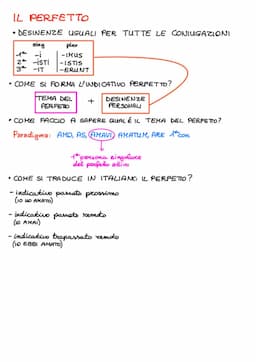 IL PERFETTO
• DESINENZE UGUALI PER TUTTE LE CONIUGAZIONI
sing plur
1ª -i -IMUS
2ª -ISTI -ISTIS
3ª -IT -ERUNT
• COME SI FORMA L'INDICATIVO PERFETTO?
TEMA DEL PERFETO + DESINENZE PERSONALI
• COME FACCIO A SAPERE QUAL È IL TEMA DEL PERFETO?
Paradigma: AMO, AS, AMAVI, AMATUM, ARE 1ª con
1ª persona singolare
del perfetto attivo
• COME SI TRADUCE IN ITALIANO IL PERFETTO?
- indicativo passato prossimo
(IO HO AMATO)
- indicativo passato remoto
(IO AMAI)
- indicativo trapassato remoto
(IO EBBI AMATO)